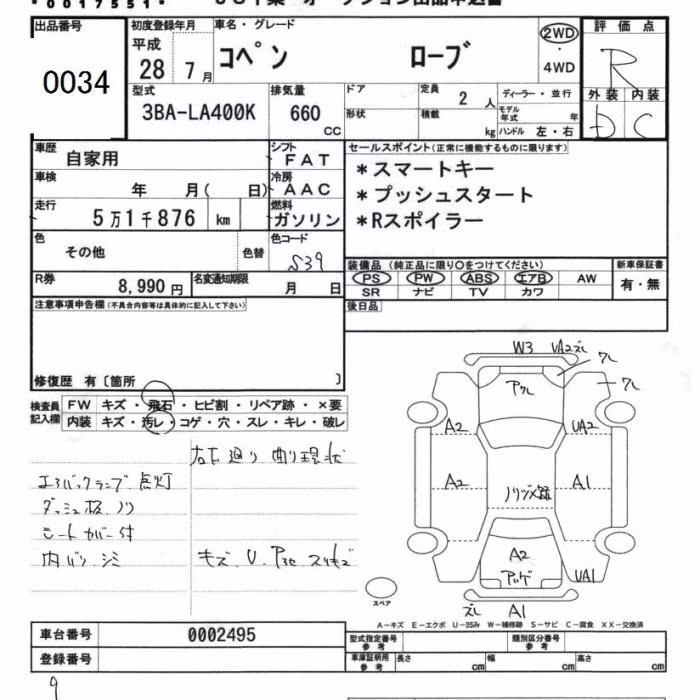 ・0017551・
出品番号
0034
初度登録年月
平成
28 7月
車名・グレード
コペン ローブ
2WD
・
4WD
評価点
R
外装 内装
D C
型式
3BA-LA400K
排気量
660
CC
ドア
形状
定員
2 人
積載
kg
ディーラー・並行
モデル年式 年
ハンドル 左・右
車歴
自家用
シフト
FAT
車検
年 月( 日)
冷房
AAC
走行
5万1千876 km
燃料
ガソリン
色
その他
色替
色コード
S39
R券
8,990円
名変通知期限
月 日
セールスポイント(正常に機能するものに限ります)
*スマートキー
*プッシュスタート
*Rスポイラー
装備品 (純正品に限り〇をつけてください)
PS PW ABS エアB AW
SR ナビ TV カワ
新車保証書
有・無
後日品
注意事項申告欄(不具合内容等は具体的に記入して下さい)
修復歴 有〔箇所 〕
検査員記入欄
FW キズ・飛石・ヒビ割・リペア跡・×要
内装 キズ・汚レ・コゲ・穴・スレ・キレ・破レ
右下廻り 曲り 現状
エアバックランプ 点灯
ダッシュ板 ノリ
シートカバー付
内バリ シミ
キズ U
W3 UA2ズレ
ワレ
ワレ
アワレ
A2 UA2
A2 A1
ノリヅメ跡
A2
UA1
ズレ A1
スペア
A-キズ E-エクボ U-凹み W-補修跡 S-サビ C-腐食 XX-交換済
車台番号 0002495
登録番号
型式指定番号
参考
類別区分番号
参考
車庫証明用
参考
長さ cm 幅 cm 高さ cm
9